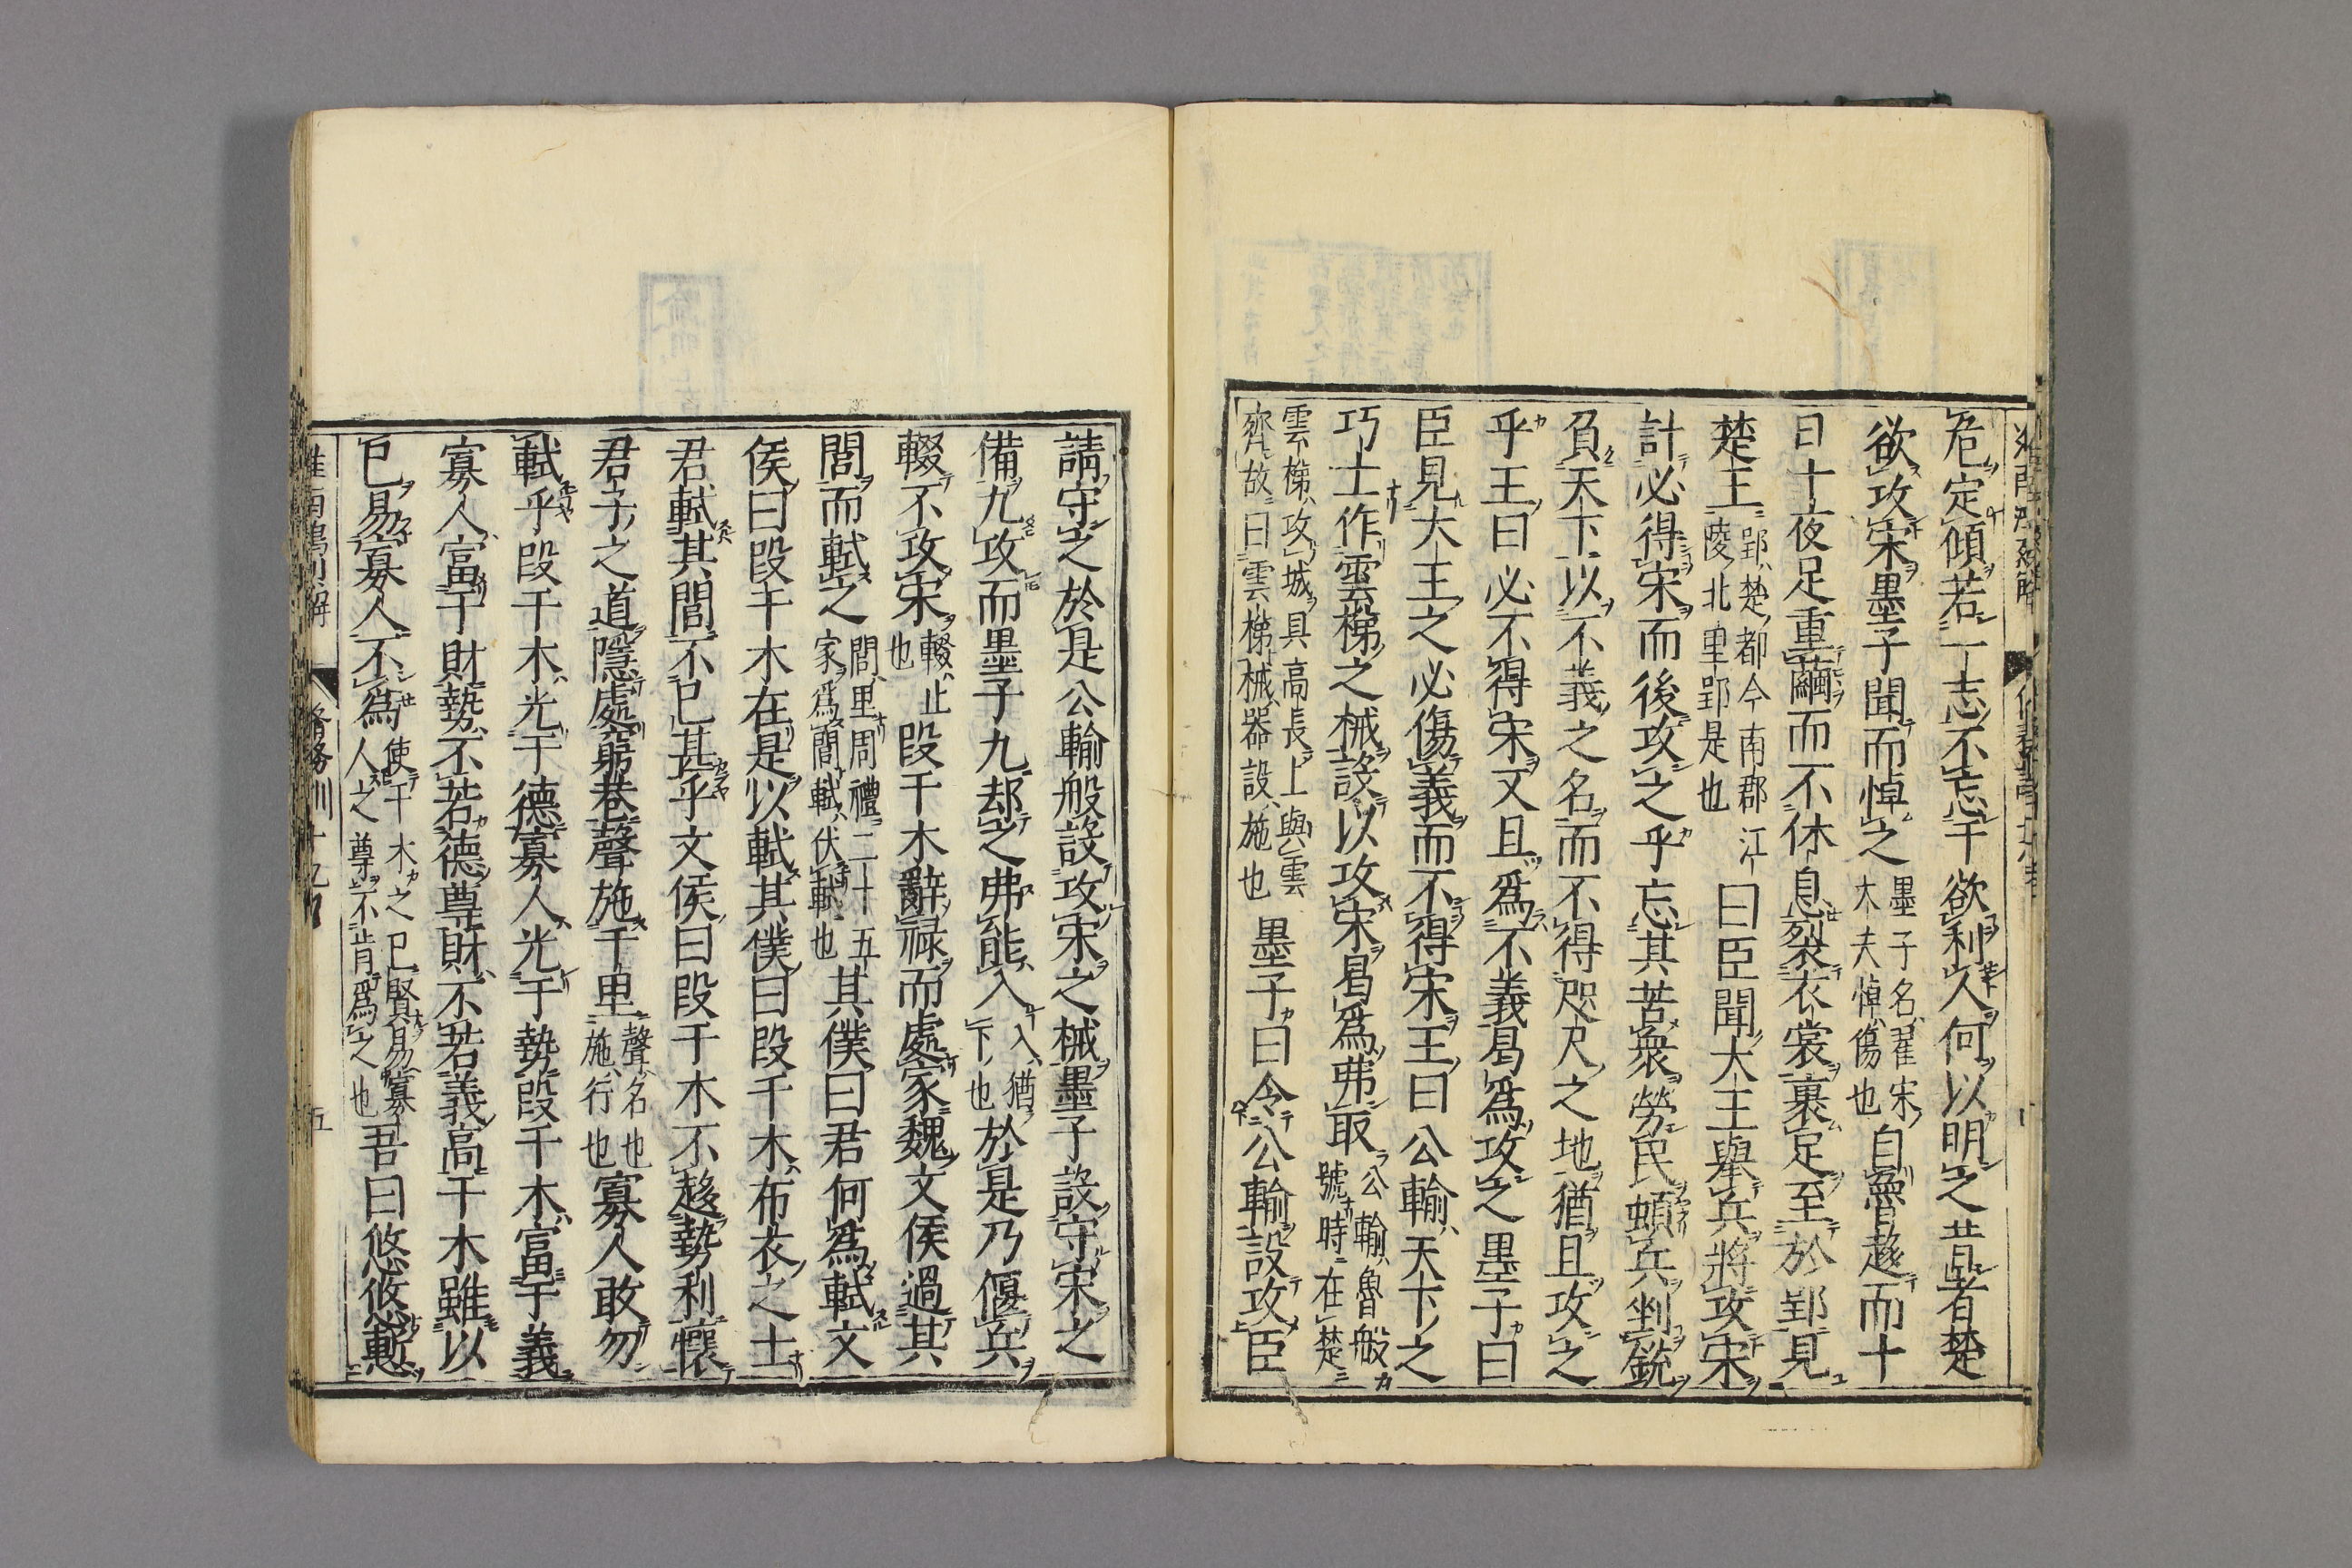 危定傾若一志不忘于欲利人何以明之昔者楚
欲攻宋墨子聞而悼之墨子名翟宋大夫悼傷也自魯趍而十
日十夜足重繭而不休息裂衣裳裹足至於郢見
楚王郢楚都今南郡江陵北里郢是也曰臣聞大王舉兵將攻宋
計必得宋而後攻之乎忘其苦衆勞民頓兵剉銳
負天下以不義之名而不得咫尺之地猶且攻之
乎王曰必不得宋又且爲不義曷爲攻之墨子曰
臣見大王之必傷義而不得宋王曰公輸天下之
巧士作雲梯之械設以攻宋曷爲弗取公輸魯般號時在楚
雲梯攻城具高長上與雲齊故曰雲梯械器設施也墨子曰令公輸設攻臣
請守之於是公輸般設攻宋之械墨子設守宋之
備九攻而墨子九却之弗能入入猶下也於是乃偃兵
輟不攻宋輟止也段干木辭祿而處家魏文侯過其
閭而軾之閭里周禮二十五家爲閭軾伏軾也其僕曰君何爲軾文
侯曰段干木在是以軾其僕曰段干木布衣之士
君軾其閭不已甚乎文侯曰段干木不趍勢利懷
君子之道隱處窮巷聲施千里聲名也施行也寡人敢勿
軾乎段干木光于德寡人光于勢段干木富于義
寡人富于財勢不若德尊財不若義高干木雖以
己易寡人不爲使干木之己賢易寡人之尊不肯爲之也吾曰悠悠慙
脩務訓十九
五